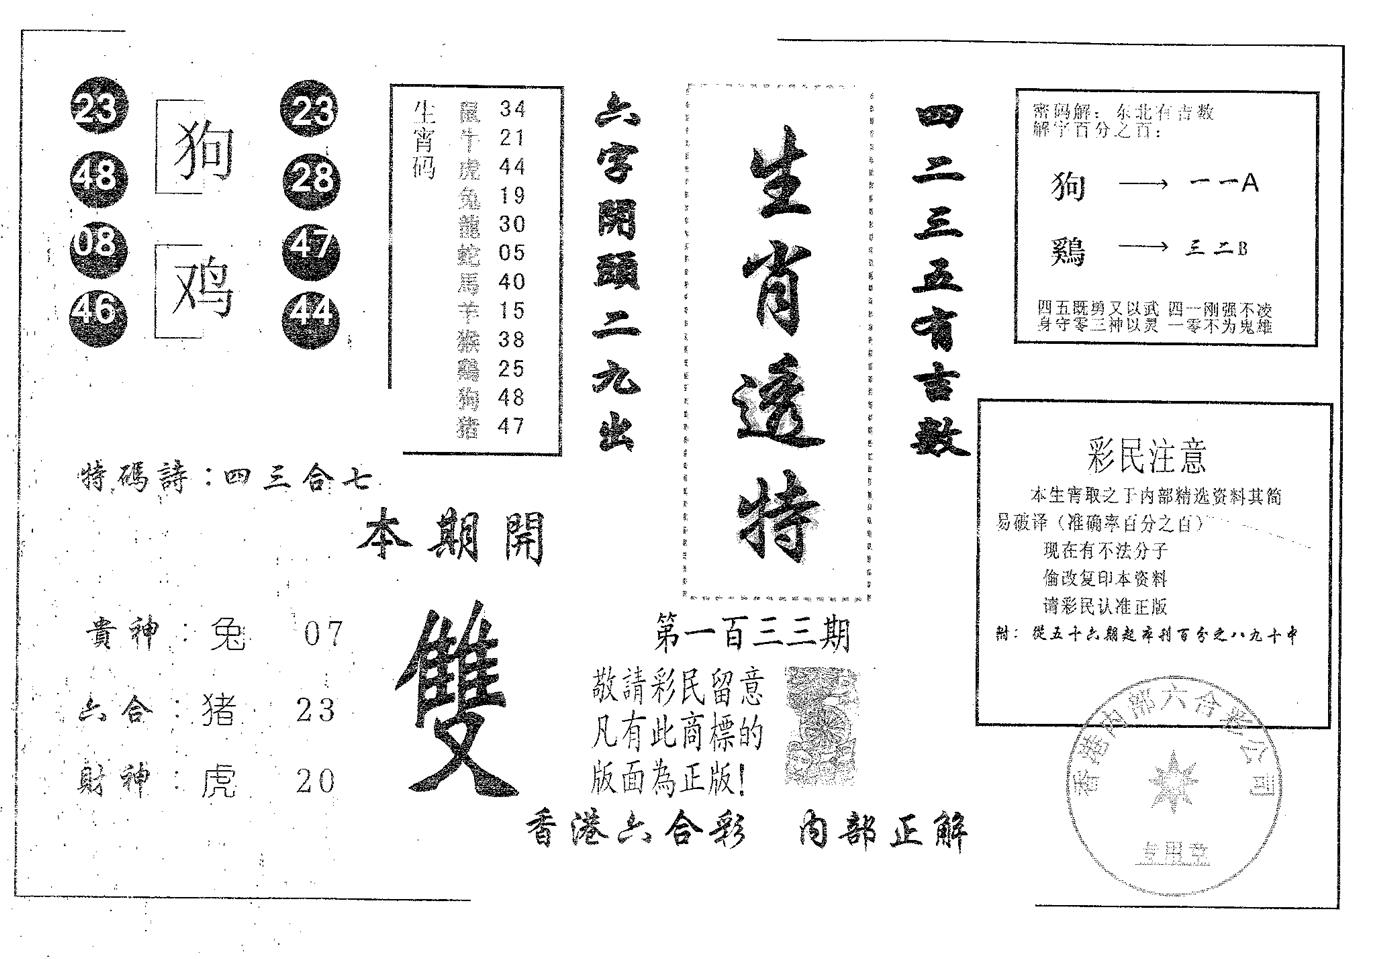 23
48
08
46
狗
鸡
23
28
47
44
生宵码
鼠 34
牛 21
虎 44
兔 19
龍 30
蛇 05
馬 40
羊 15
猴 38
鷄 25
狗 48
猪 47
六字開頭二九出
生肖透特
四二三五有吉數
密码解：东北有吉数
解字百分之百：
狗 → 一一A
鷄 → 三二B
四五既勇又以武 四一刚强不凌
身守零三神以灵 一零不为鬼雄
特碼詩：四三合七
本期開
雙
貴神：兔 07
六合：猪 23
財神：虎 20
第一百三三期
敬請彩民留意
凡有此商標的
版面為正版！
香港六合彩 内部正解
彩民注意
本生宵取之于内部精选资料其简
易破译（准确率百分之百）
现在有不法分子
偷改复印本资料
请彩民认准正版
附：從五十六期起本刊百分之八九十中
香港内部六合彩公司
专用章